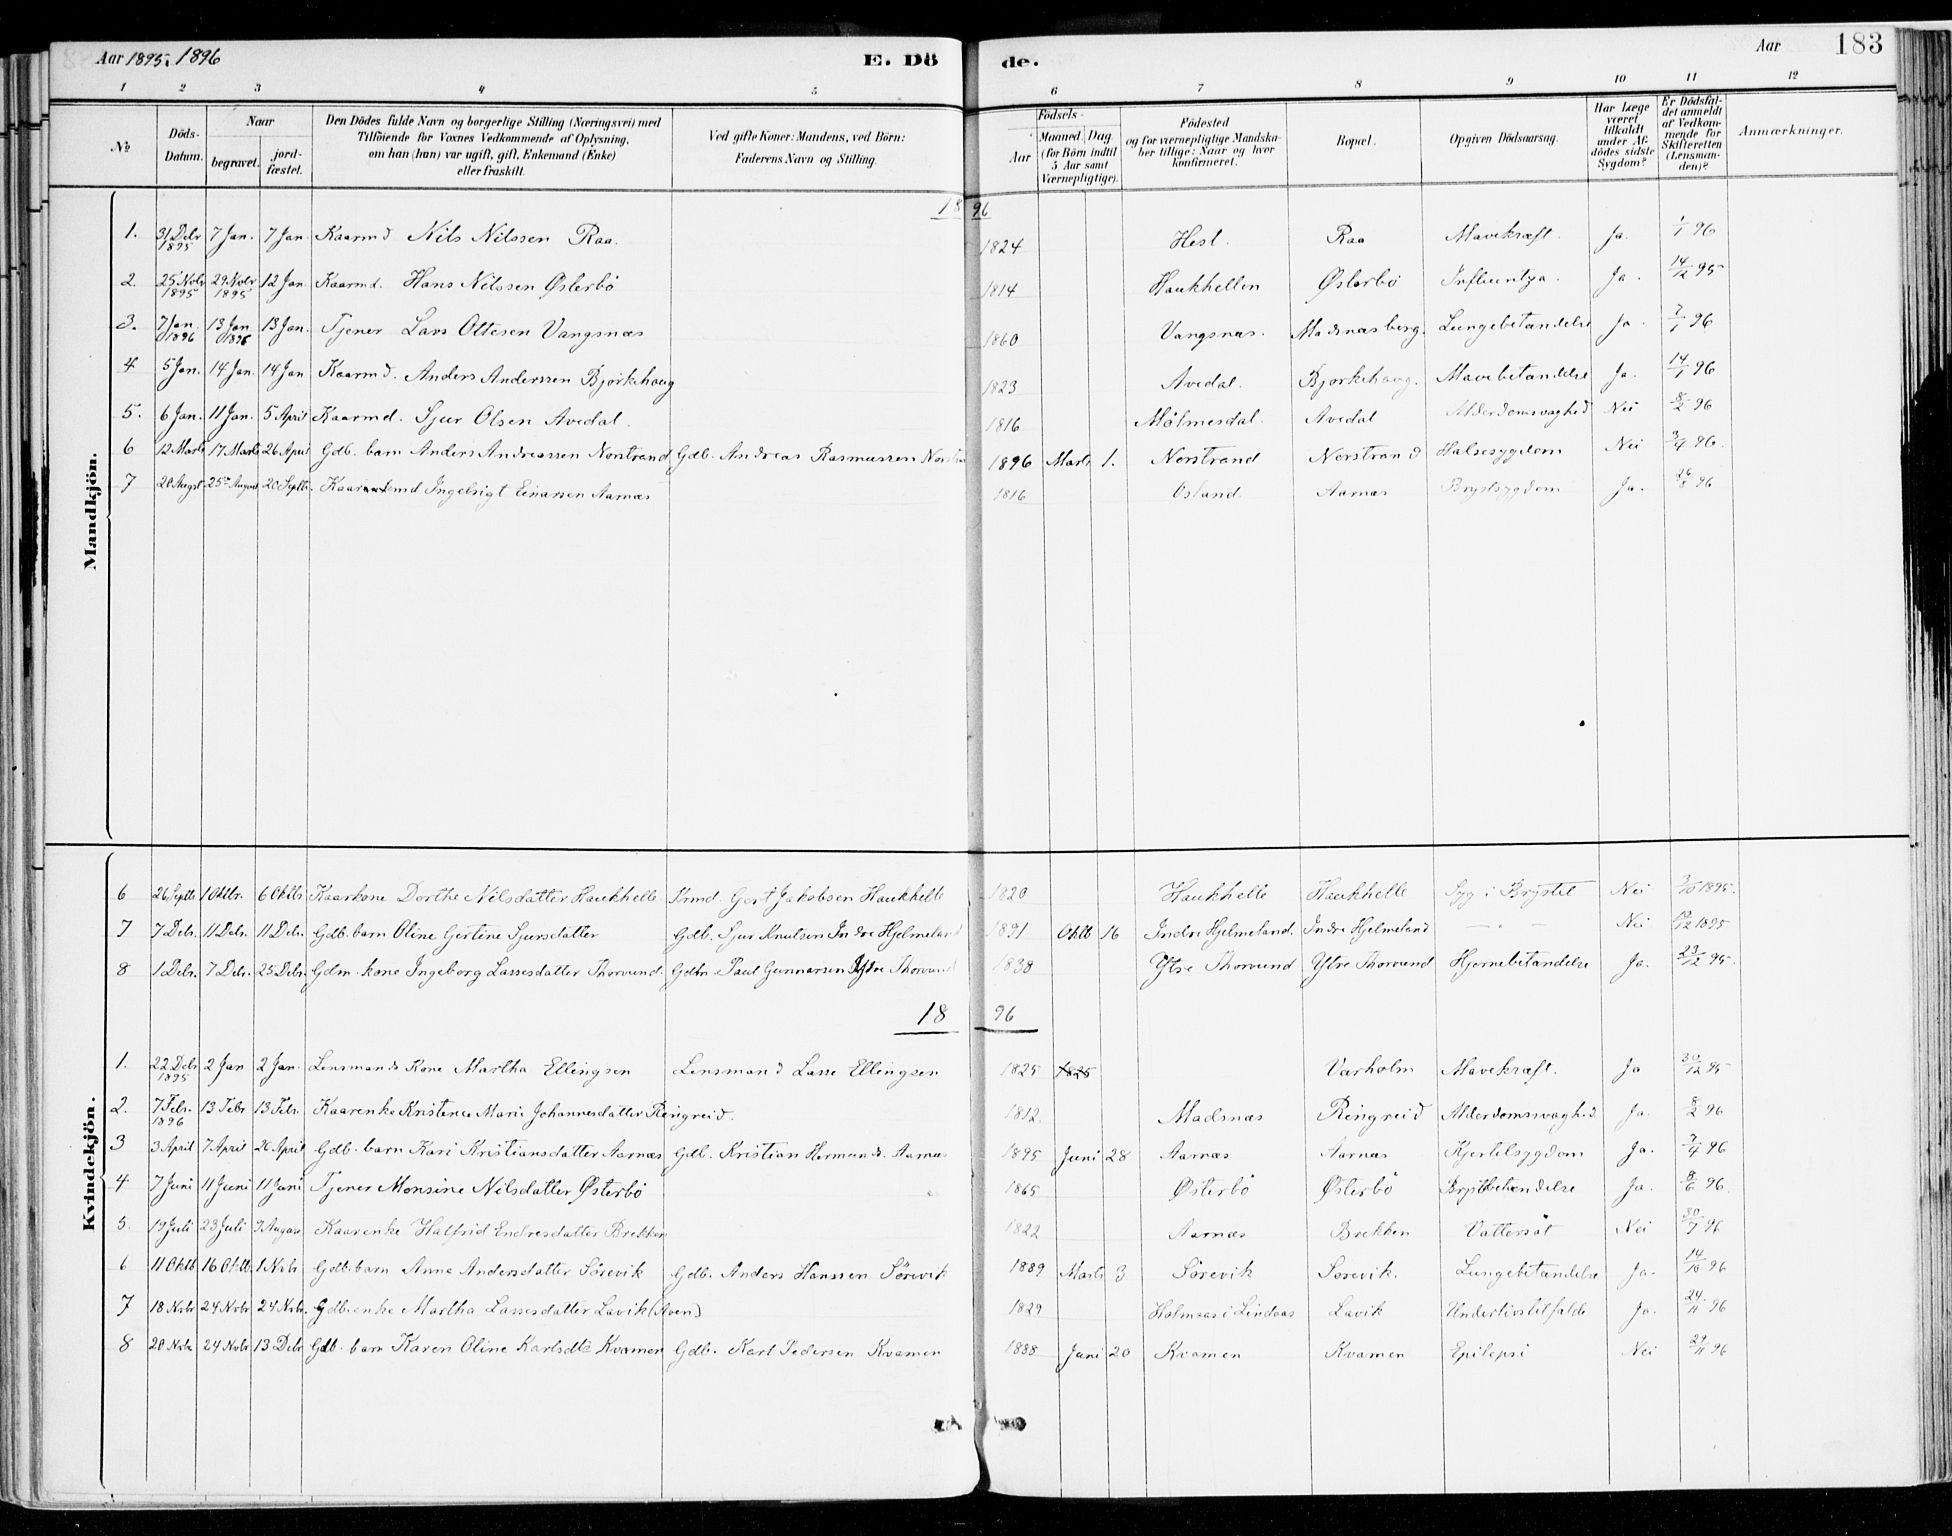 Aar 1895, 1896 E. Dö de. Aar 183
1 2 3 4 5 6 7 8 9 10 11 12
№ Döds-Datum. Naar begravet. jord-fæstet. Den Dödes fulde Navn og borgerlige Stilling (Næringsvei) med Tilföiende for Voxnes Vedkommende af Oplysning, om han (hun) var ugift, gift, Enkemand (Enke) eller fraskilt. Ved gifte Koner: Mandens, ved Börn: Faderens Navn og Stilling. Födsels- Aar Maaned. Dag. (for Börn indtil 5 Aar samt Værnepligtige). Födested og for værnepligtige Mandskaber tillige: Naar og hvor konfirmeret. Bopæl. Opgiven Dödsaarsag. Har Læge været tilkaldt under Afdödes sidste Sygdom? Er Dödsfaldet anmeldt af Vedkommende for Skifteretten (Lensmanden)? Anmærkninger.
Mandkjön.
1896
1. 31 Debr 1895 7 Jan. 7 Jan. Kaarmd Nils Nilssen Raa. 1824 Hest. Raa Mavekræft. Ja. 1/1 96
2. 25 Nobr 1895 29 Nobr 1895 12 Jan. Kaarmd. Hans Nilssen Østerbö 1814 Haukhellen Østerbö Influentza. Ja. 14/12 95
3. 7 Jan. 1896 13 Jan 1896 13 Jan. Tjener Lars Ottesen Vangsnæs 1860 Vangsnæs. Madsnæsberg. Lungebetændelse Ja. 7/1 96
4 5 Jan. 14 Jan. 14 Jan Kaarmd. Anders Anderssen Bjorkehaug 1823 Avedal. Bjorkehaug. Mavebetændelse Ja. 14/1 96
5. 6 Jan. 11 Jan. 5 April Kaarmd. Sjur Olsen Avedal. 1816 Mølmesdal. Avedal Alderdomsvaghed Nei 8/2 96
6 12 Marts 17 Marts 26 April Gdb. barn Anders Andreassen Norstrand Gdb. Andreas Rasmussen Norstrand 1896 Marts 1. Norstrand Norstrand Halsesygdom Nei 3/4 96.
7 20 Augst 25 August 20 Septb. Kaarmd Ingebrigt Einarsen Aarnæs 1816 Osland Aarnæs Brystsygdom Ja. 26/8 96
Kvindekjön.
6 26 Septb 1 Oktbr. 6 Oktb Kaarkone Dorthe Nilsdatter Haukhelle Krmd Gert Jakobsen Haukhelle 1820 Haukhelle Haukhelle Syg i Brystet Nei 3/10 1895.
7 7 Debr. 11 Debr. 11 Debr. Gdb. barn Oline Gertine Sjursdatter Gdb. Sjur Knutsen Indre Hjelmeland 1891 Oktb 16 Indre Hjelmeland. Indre Hjelmeland — " — Nei 12/12 1895
8 1 Debr. 7 Debr. 25 Debr. Gdm. kone Ingeborg Lassesdatter Thorvund. Gdbr. Paul Gunnarsen Ytre Thorvund 1838 Ytre Thorvund Ytre Thorvund Hjernebetændelse Ja. 23/12 95.
1896
1. 22 Debr 1895 2 Jan 2 Jan. Lensmands Kone Martha Ellingsen Lensmand Lasse Ellingsen 1825 1825 Varholm Mavekræft. Ja 30/12 95
2. 7 Febr. 1896 13 Febr 13 Febr. Kaarenke Kristence Marie Johannesdatter Ringreid. 1812. Madsnæs Ringreid Alderdomsvaghed Ja. 8/2 96
3 3 April 7 April 26 April Gdb. barn Kari Kristiansdatter Aarnæs Gdb. Kristian Hermunds. Aarnæs 1895 Juni 28 Aarnæs Aarnæs Kjertelsygdom Ja. 7/4 96
4 7 Juni 11 Juni 11 Juni Tjener Monsine Nilsdatter Østerbö 1865 Østerbö Østerbö Brystbetændelse Ja. 8/6 96.
5. 19 Juli 23 Juli 9 August Kaarenke Halfrid Endresdatter Brekken 1822 Aarnæs Brekken Vattersót Nei 30/7 96
6 11 Oktb 16 Oktb 1 Nobr Gdb. barn Anne Andersdatter Sörevik Gdb. Anders Hanssen Sörevik 1889 Marts 3 Sörevik Sorevik. Lungebetændelse Ja. 14/10 96
7 18 Nobr 24 Nobr 24 Nobr. Gdb. enke Martha Lassesdatter Lavik (Aven) 1829 Holmaas i Lindaas Lavik Underlivstilfælde Ja. 24/11 96
8 20 Nobr 24 Nobr 13 Debr Gdb. barn Karen Oline Karlsdtr Kvamen Gdb. Karl Pedersen Kvamen 1888 Juni 20 Kvamen Kvamen Epilepsi Nei 24/11 96